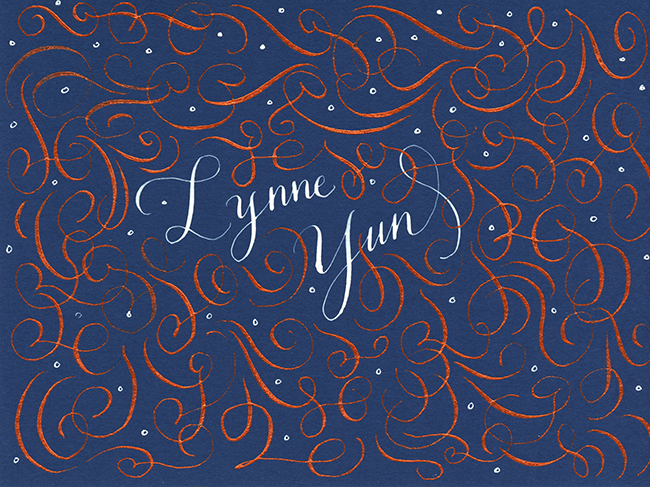 Lynne
Yun